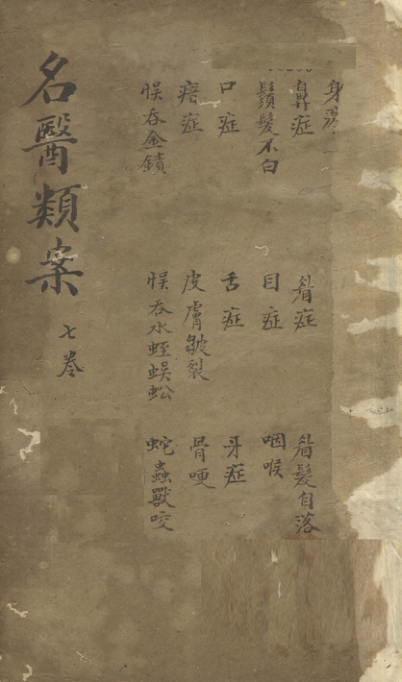 身
鼻症 眉症 眉髮自落
鬚髮不白 目症 咽喉
口症 舌症 牙症
瘖症 皮膚皴裂 骨哽
悞吞金 悞吞水蛭蜈蚣 蛇蟲獸咬
名醫類案 七卷